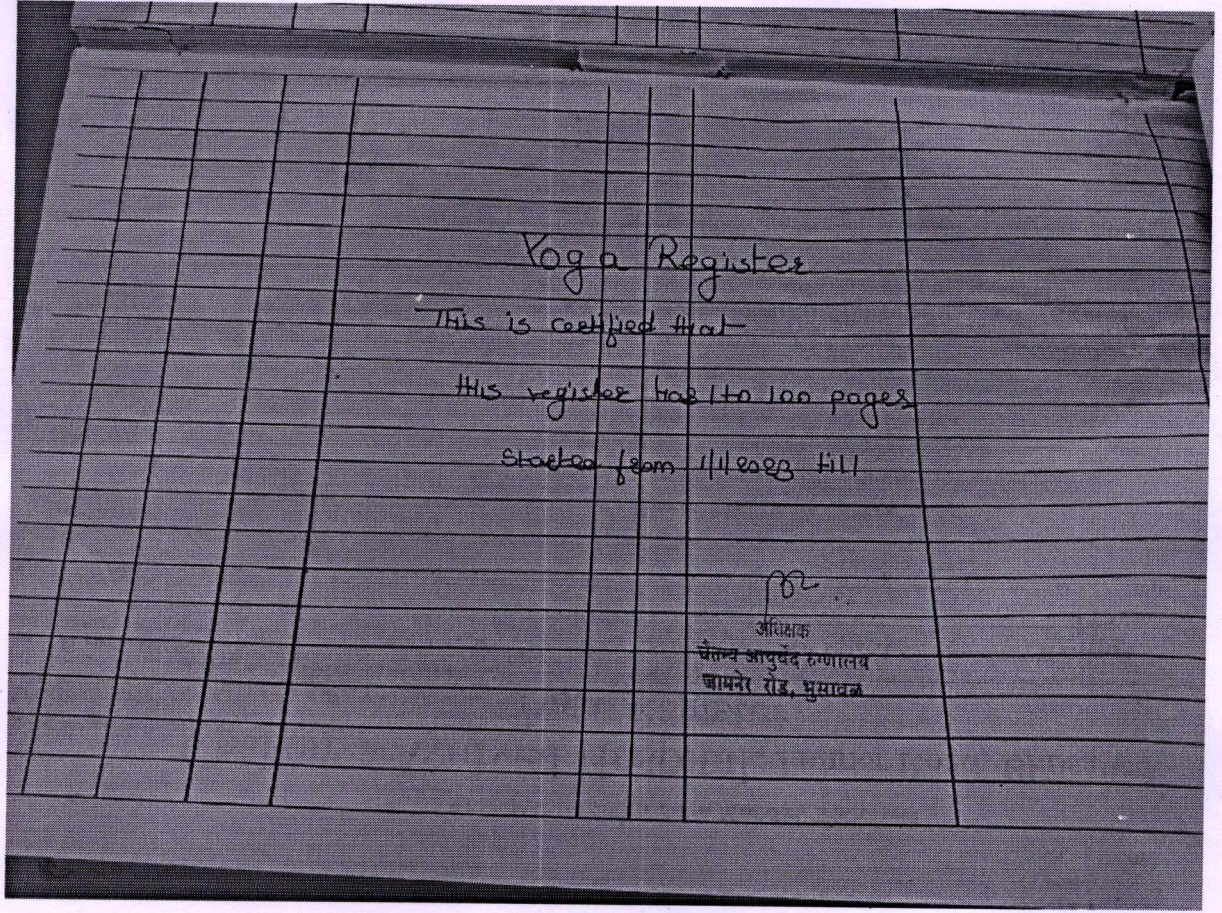 Yoga Register
This is certified that
this register has 1 to 100 pages
Started from 1/1/2023 till
अधिक्षक
चैतन्य आयुर्वेद रुग्णालय
जामनेर रोड, भुसावळ